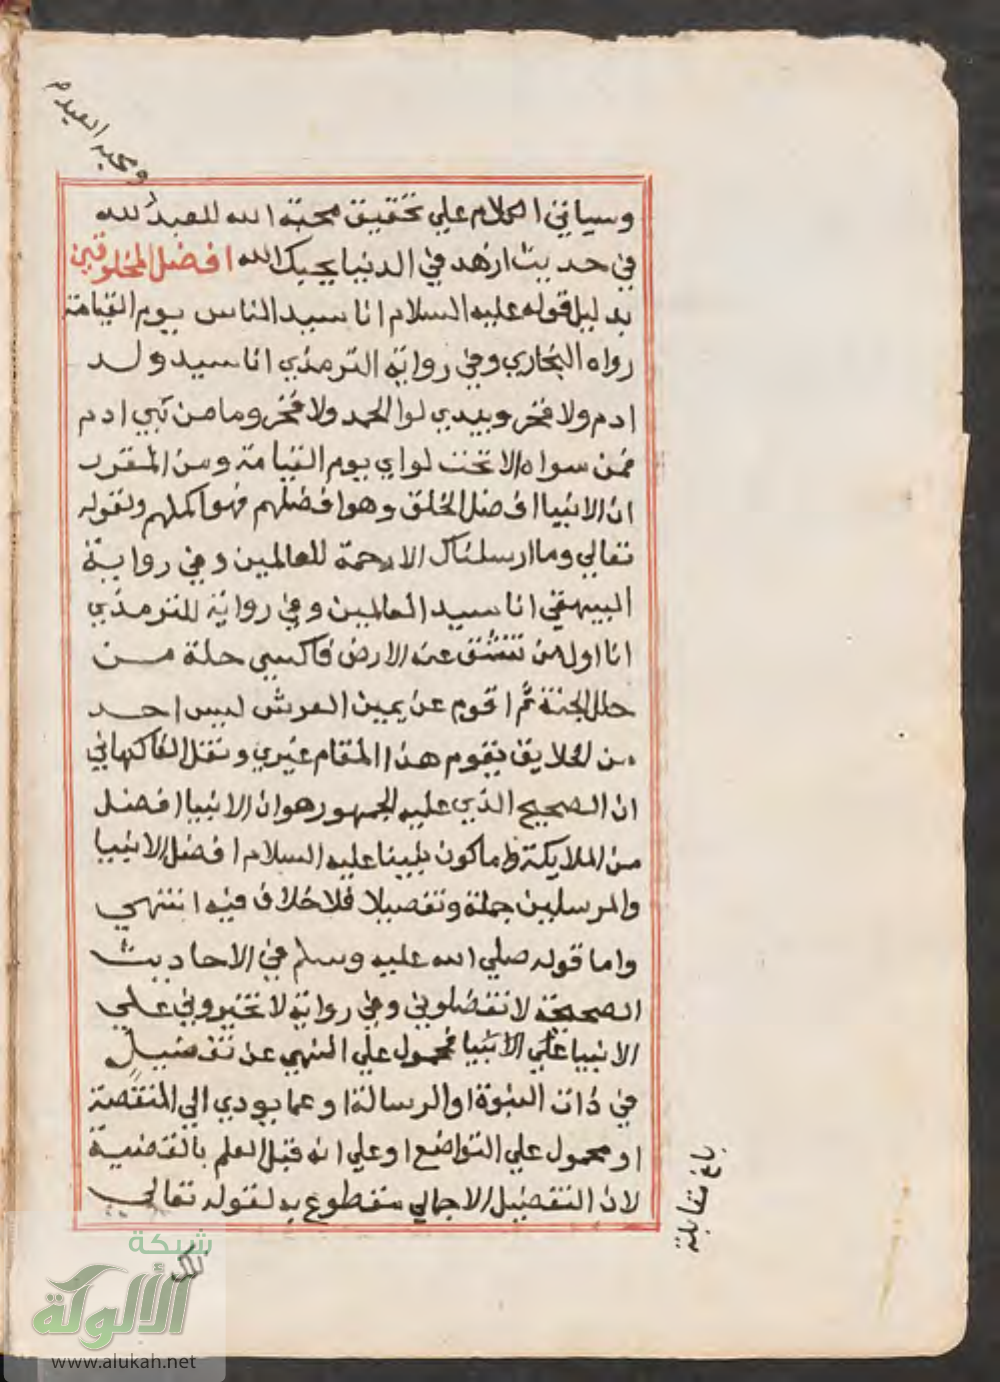 ومحبة العبد
وسياتي الكلام علي تحقيق محبة الله للعبد لله
في حديث ازهد في الدنيا يحبك الله افضل المخلوقين
بدليل قوله عليه السلام انا سيد الناس يوم القيامة
رواه البخاري وفي رواية الترمذي انا سيد ولد
ادم ولا فخر وبيدي لوا الحمد ولا فخر وما من نبي ادم
فمن سواه الا تحت لواي يوم القيامة ومن المقرر
ان الانبيا افضل الخلق وهو افضلهم فهو اكملهم ولقوله
تعالي وما ارسلناك الا رحمة للعالمين وفي رواية
البيهقي انا سيد العالمين وفي رواية للترمذي
انا اول من تنشق عنه الارض فاكسي حلة من
حلل الجنة ثم اقوم عن يمين العرش ليس احد
من الخلايق يقوم هذا المقام غيري ونقل الفاكهاني
ان الصحيح الذي عليه الجمهور هو ان الانبيا افضل
من الملايكة واما كون نبينا عليه السلام افضل الانبيا
والمرسلين جملة وتفصيلا فلا خلاف فيه انتهي
واما قوله صلي الله عليه وسلم في الاحاديث
الصحيحة لا تفضلوني وفي رواية لا تخيروني علي
الانبيا علي الانبيا فمحمول علي النهي عن تفضيل
في ذات النبوة او الرسالة او عما يودي الي المنقصة
او محمول علي التواضع او علي انه قبل العلم بالقضية
لان التفضيل الاجمالي مقطوع به لقوله تعالي
بلغ مقابلة
تلك
شبكة
الألوكة
www.alukah.net